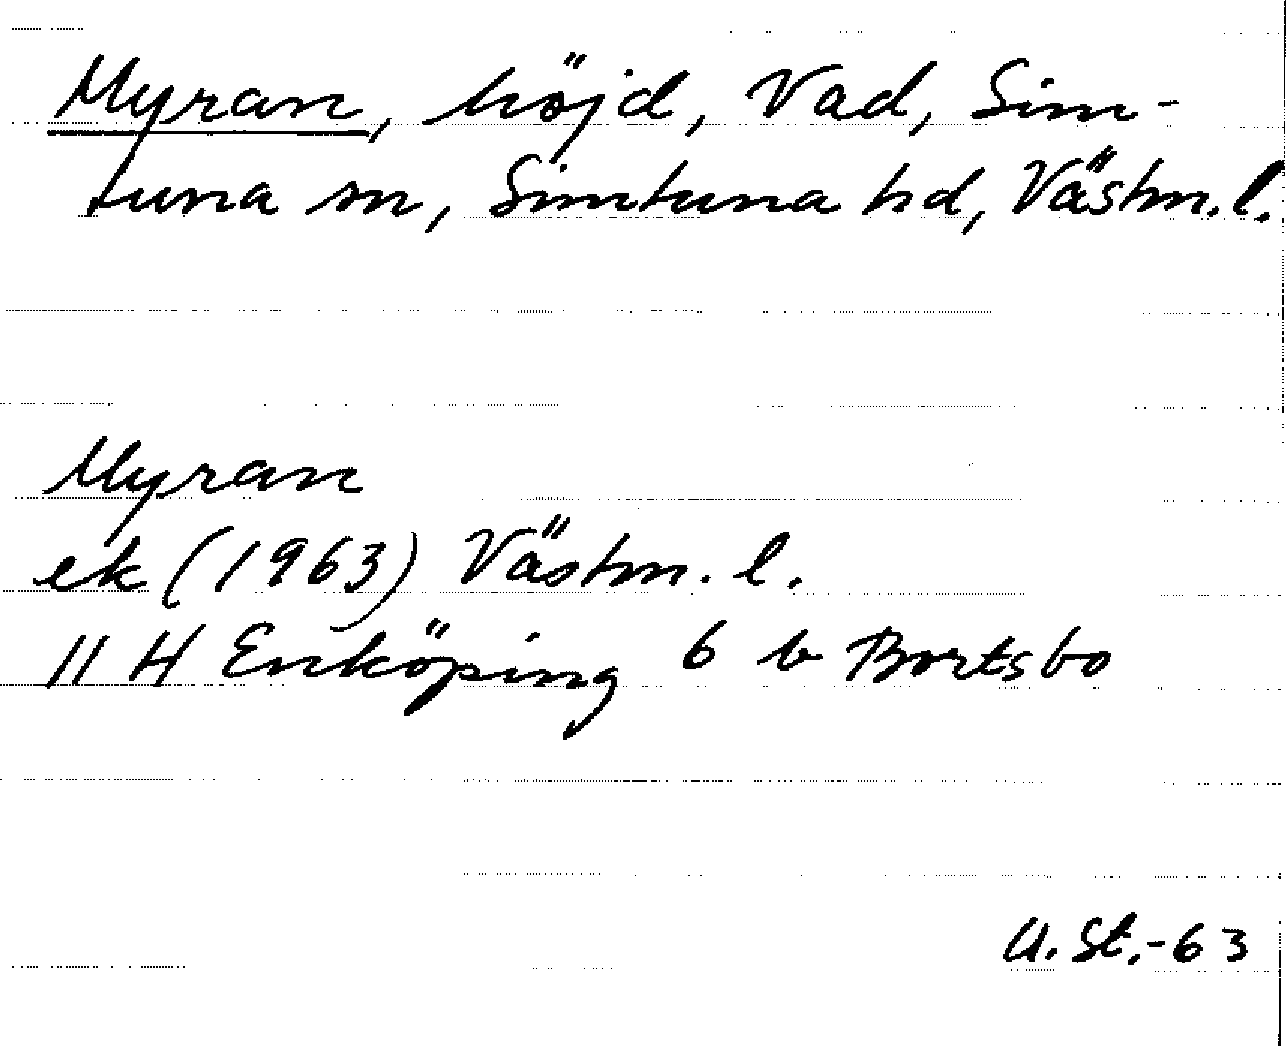 Myran, höjd, Vad, Sim-
tuna sn, Simtuna hd, Västm. l.
Myran
ek (1963) Västm. l.
11 H Enköping 6 b Bortsbo
U. St. -63